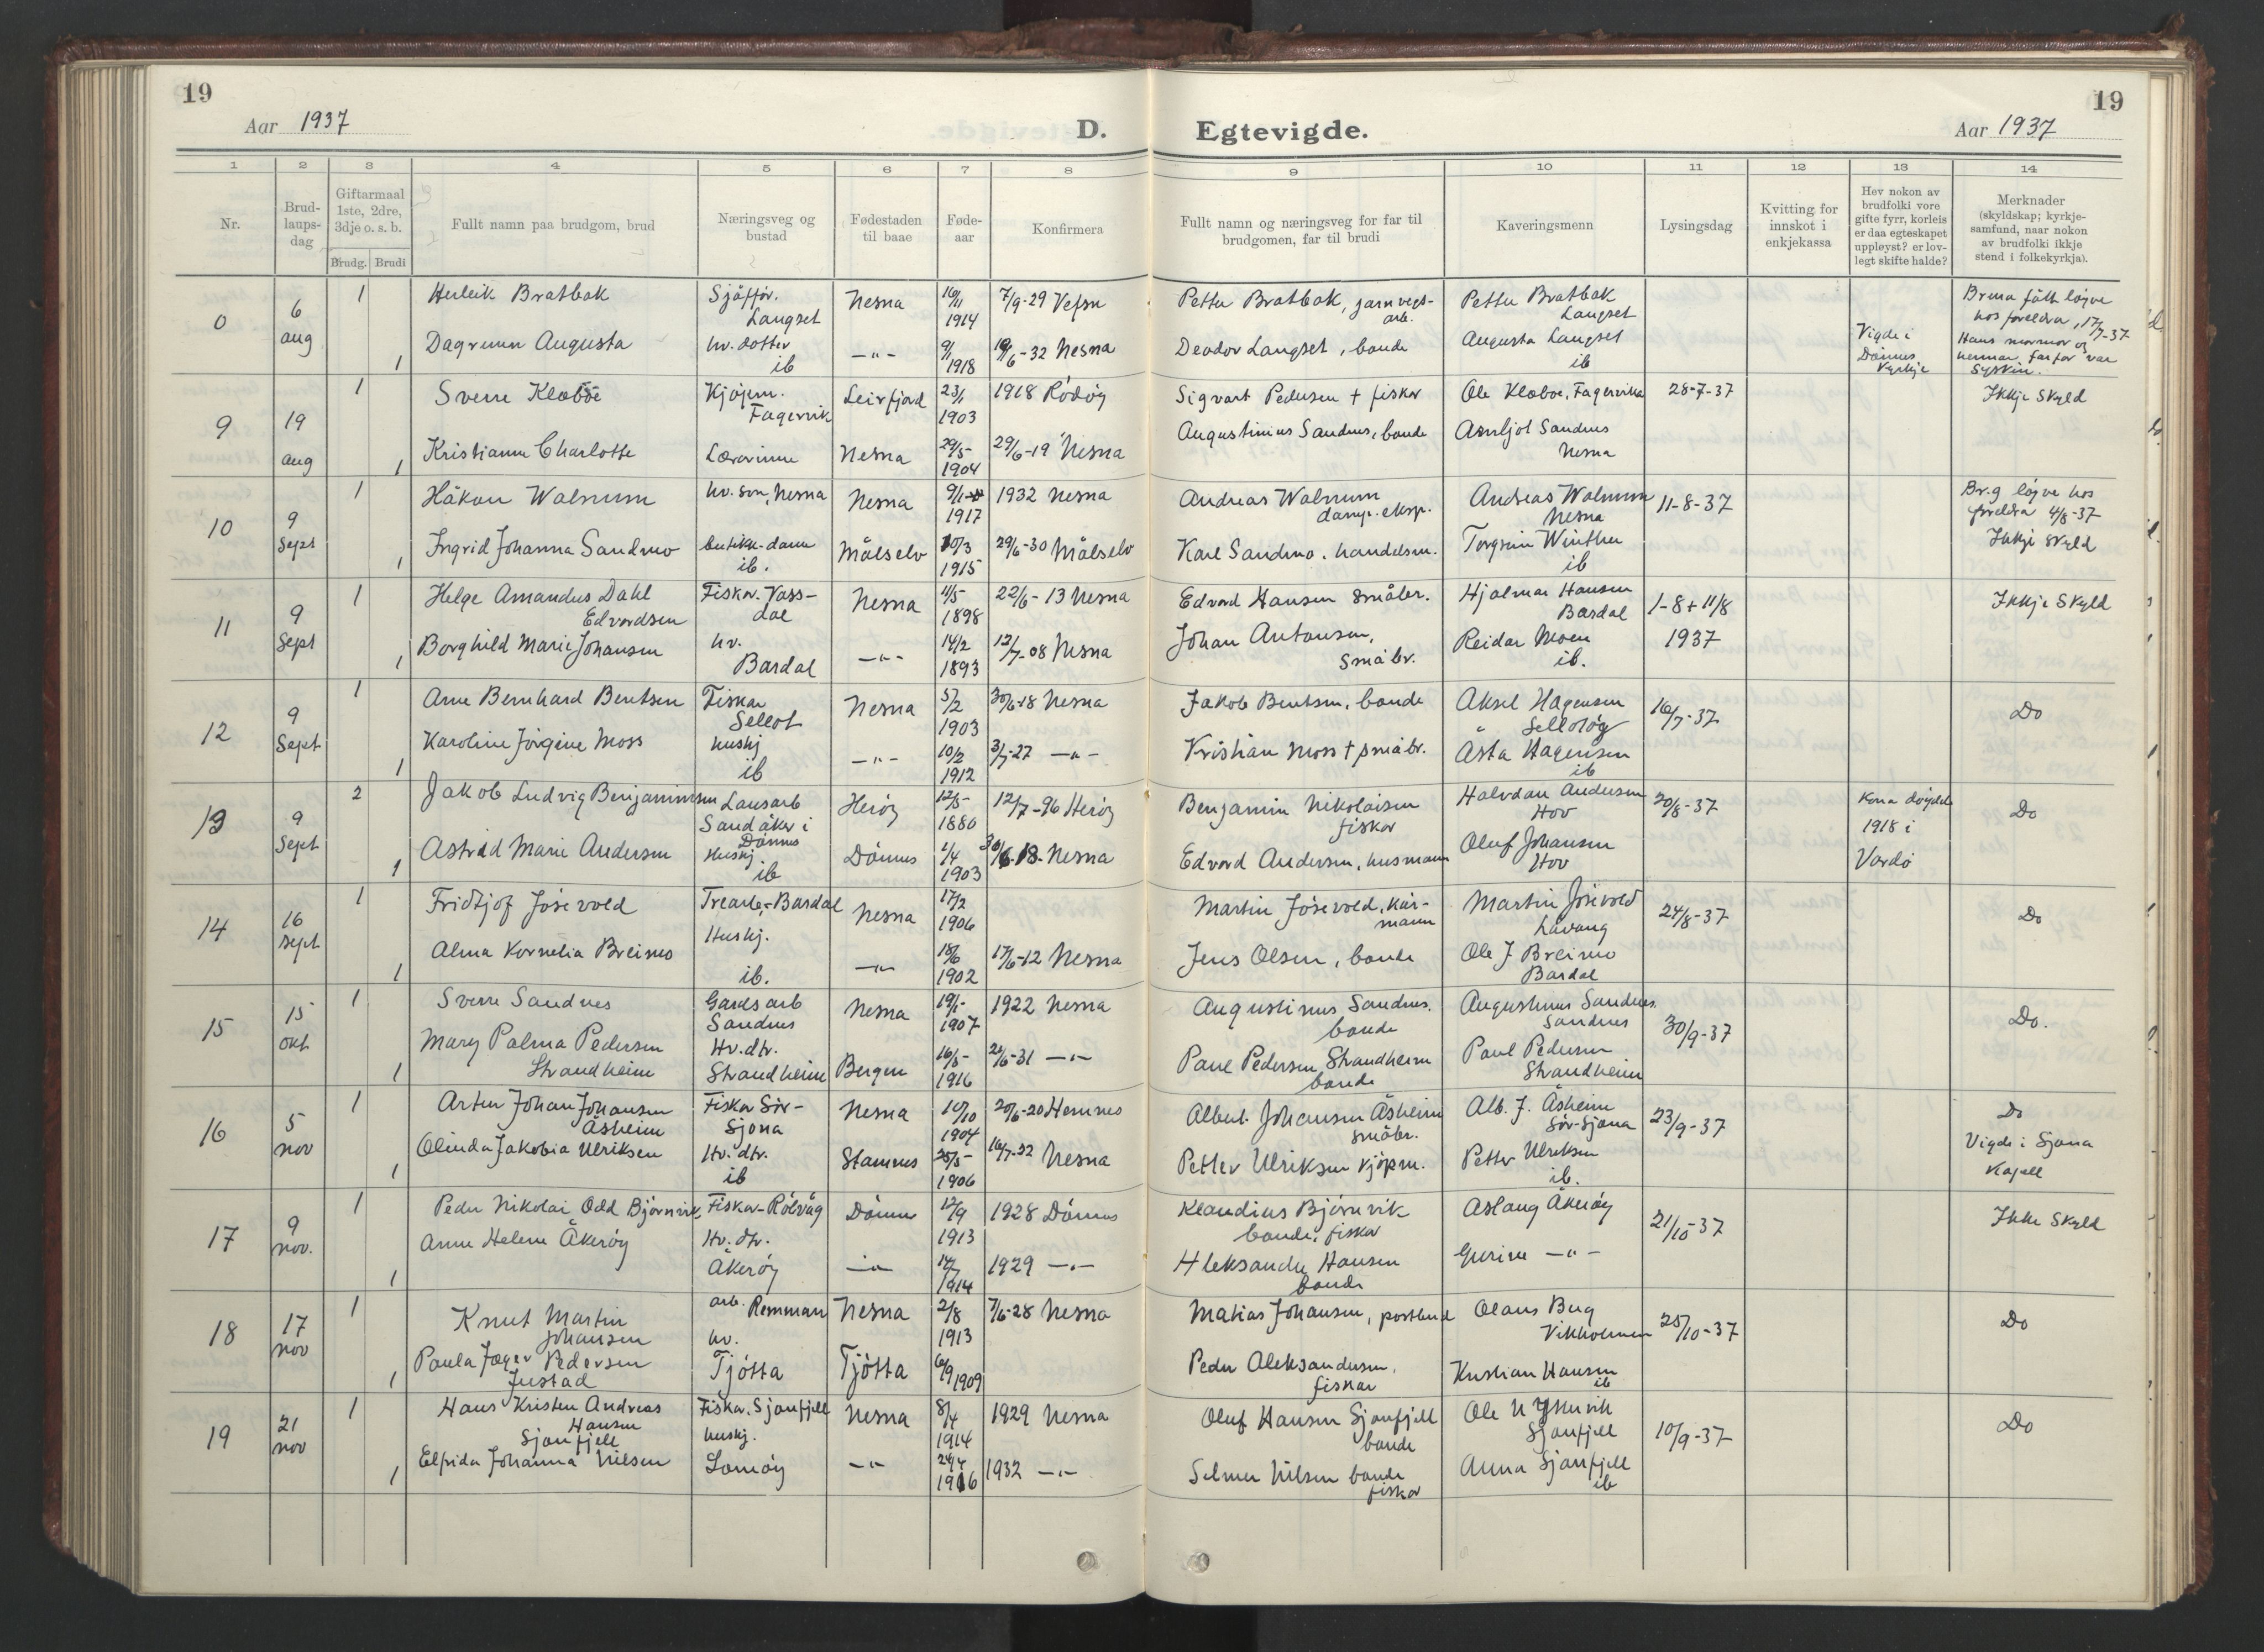 19
Aar 1937
D.
Egtevigde.
19
Aar 1937
1 2 3 4 5 6 7 8 9 10 11 12 13 14
Nr.
Brud-
laups-
dag
Giftarmaal
1ste, 2dre,
3dje o. s. b.
Brudg. Brudi
Fullt namn paa brudgom, brud
Næringsveg og
bustad
Fødestaden
til baae
Føde-
aar
Konfirmera
Fullt namn og næringsveg for far til
brudgomen, far til brudi
Kaveringsmenn
Lysingsdag
Kvitting for
innskot i
enkjekassa
Hev nokon av
brudfolki vore
gifte fyrr, korleis
er daa egteskapet
uppløyst? er lov-
legt skifte halde?
Merknader
(skyldskap; kyrkje-
samfund, naar nokon
av brudfolki ikkje
stend i folkekyrkja).
0
6
aug
1
Herleik Bratbak
Sjåfför.
Langset
Nesna
16/11
1914
7/9-29 Vefsn
Petter Bratbak, jarnvegs-
arb.
Petter Bratbak
Langset
1
Dagrunn Augusta
hv. dotter
ib
-"-
9/1
1918
19/6-32 Nesna
Deodor Langset, bonde
Augusta Langset
ib
Vigde i
Dönnes
Kyrkje
fått löyve
hos foreldra, 17/7-37
Hans mormor og
hennar farfar var
syskin.
9
19
aug
1
Sverre Klæboe
Kjöpm.
Fagervik
Leirfjord
23/1
1903
1918 Rödöy
Sigvart Pedersen + fiskar
Ole Klæboe, Fagervika
28-7-37
Ikkje Skyld
1
Kristianne Charlotte
Lærarinne
Nesna
29/5-
1904
29/6-19 Nesna
Augustinius Sandnes, bonde
Arnljot Sandnes
Nesna
10
9
sept
1
Håkon Walnum
hv. son, Nesna
Nesna
9/1
1917
1932 Nesna
Andreas Walnum
damp. eksp.
Andreas Walnum
Nesna
11-8-37
Br.g löyve hos
foreldra 4/8-37
Ikkje skyld
1
Ingrid Johanna Sandmo
butikk-dame
ib.
Målselv
10/3
1915
29/6-30 Målselv
Karl Sandmo, handelsm.
Torgrim Winther
ib
11
9
Sept
1
Helge Amandus Dahl
Edvardsen
Fiskar. Vass-
dal
Nesna
11/5-
1898
22/6-13 Nesna
Edvard Hansen småbr.
Hjalmar Hansen
Bardal
1-8 + 11/8
1937
Ikkje Skyld
1
Borghild Marie Johansen
hv.
Bardal
-"-
14/2
1893
12/7-08 Nesna
Johan Antonsen,
småbr.
Reidar Moen
ib.
12
9
Sept
1
Arne Bernhard Bentsen
Fiskar
Sellöt
Nesna
5/2
1903
30/6-18 Nesna
Jakob Bentsen, bonde
Aksel Hagensen
Sellotöy
16/7-37
Do
1
Karoline Jörgine Moss
huskj
ib
-"-
10/2
1912
3/7-27 -"-
Kristian Moss + småbr.
Åsta Hagensen
ib
13
9
Sept
2
Jakob Ludvig Benjaminsen
Lausarb
Sandåker i
Dönnes
Heröy
12/5-
1880
12/7-96 Heröy
Benjamin Nikolaisen
fiskar
Halvdan Andersen
Hov
20/8-37
Kona döydde
1918 i
Vardö
Do
1
Astrid Marie Andersen
Huskj.
ib
Dönnes
1/4
1903
30/6-18-Nesna
Edvard Andersen, husmann
Oluf Johansen
Hov
14
16
sept
1
Fridtjof Jösevold
Trearb.-Bardal
Nesna
17/2
1906
Martin Jösevold, kår-
mann
Martin Jösevold
Låvong
24/8-37
Do
1
Alma Kornelia Breimo
Huskj.
ib.
-"-
18/6
1902
17/6-12 Nesna
Jens Olsen, bonde
Ole J Breimo
Bardal
15
15
okt
1
Sverre Sandnes
Gardsarb
Sandnes
Nesna
19/1-
1907
1922 Nesna
Augustinus Sandnes.
bonde
Augustinus Sandnes.
Sandnes
30/9-37
Do.
1
Mary Palma Pedersen
Strandheim
Hv. dtr.
Strandheim
Bergen
16/5-
1916
21/6-31 -"-
Paul Pedersen Strandheim
bonde
Paul Pedersen
Strandheim
16
5
nov
1
Artur Johan Johansen
Åsheim
Fiskar Sör-
Sjona
Nesna
10/10
1904
20/6-20 Hemnes
Albert Johansen Åsheim
småbr.
Alb. J. Åsheim
Sör-Sjona
23/9-37
Do
Vigde i Sjona
Kapell
1
Olinda Jakobia Ulriksen
Hv. dtr.
ib
Stamnes
25/5-
1906
16/7-22 Nesna
Petter Ulriksen kjöpm.
Petter Ulriksen
ib.
17
9
nov.
1
Peder Nikolai Odd Björnvik,
Fiskar-Rölvåg
Dönnes
12/9
1913
1928 Dönnes
Klaudius Björnvik
bonde, fiskar
Aslaug Åkeröy
21/10-37
Ikke Skyld
1
Anne Helene Åkeröy
Hv. dtr.
Åkeröy
-"-
1914
1929 -"-
Aleksander Hansen
bonde
Gurine -"-
18
17
nov
1
Knut Martin
Johansen
arb. Remman
Nesna
2/8
1913
7/6-28 Nesna
Matias Johansen, postbud
Olaus Berg
Vikholmen
25/10-37
Do
1
Paula Jæger Pedersen
Justad
hv.
Tjötta
Tjötta
6/9 1909
Peder Aleksandersen,
fiskar
Kristian Hansen
ib
19
21
nov
1
Hans Kristen Andreas
Hansen
Sjonfjell
Fiskar, Sjonfjell
Nesna
8/4
1914
1929 Nesna
Oluf Hansen Sjonfjell
bonde
Ole N
Sjonfjell
10/9-37
Do
1
Elfrida Johanna Nilsen
huskj.
Lomöy
-"-
1916
1932 -"-
Selmer Nilsen bonde
fiskar
Anna Sjonfjell
ib